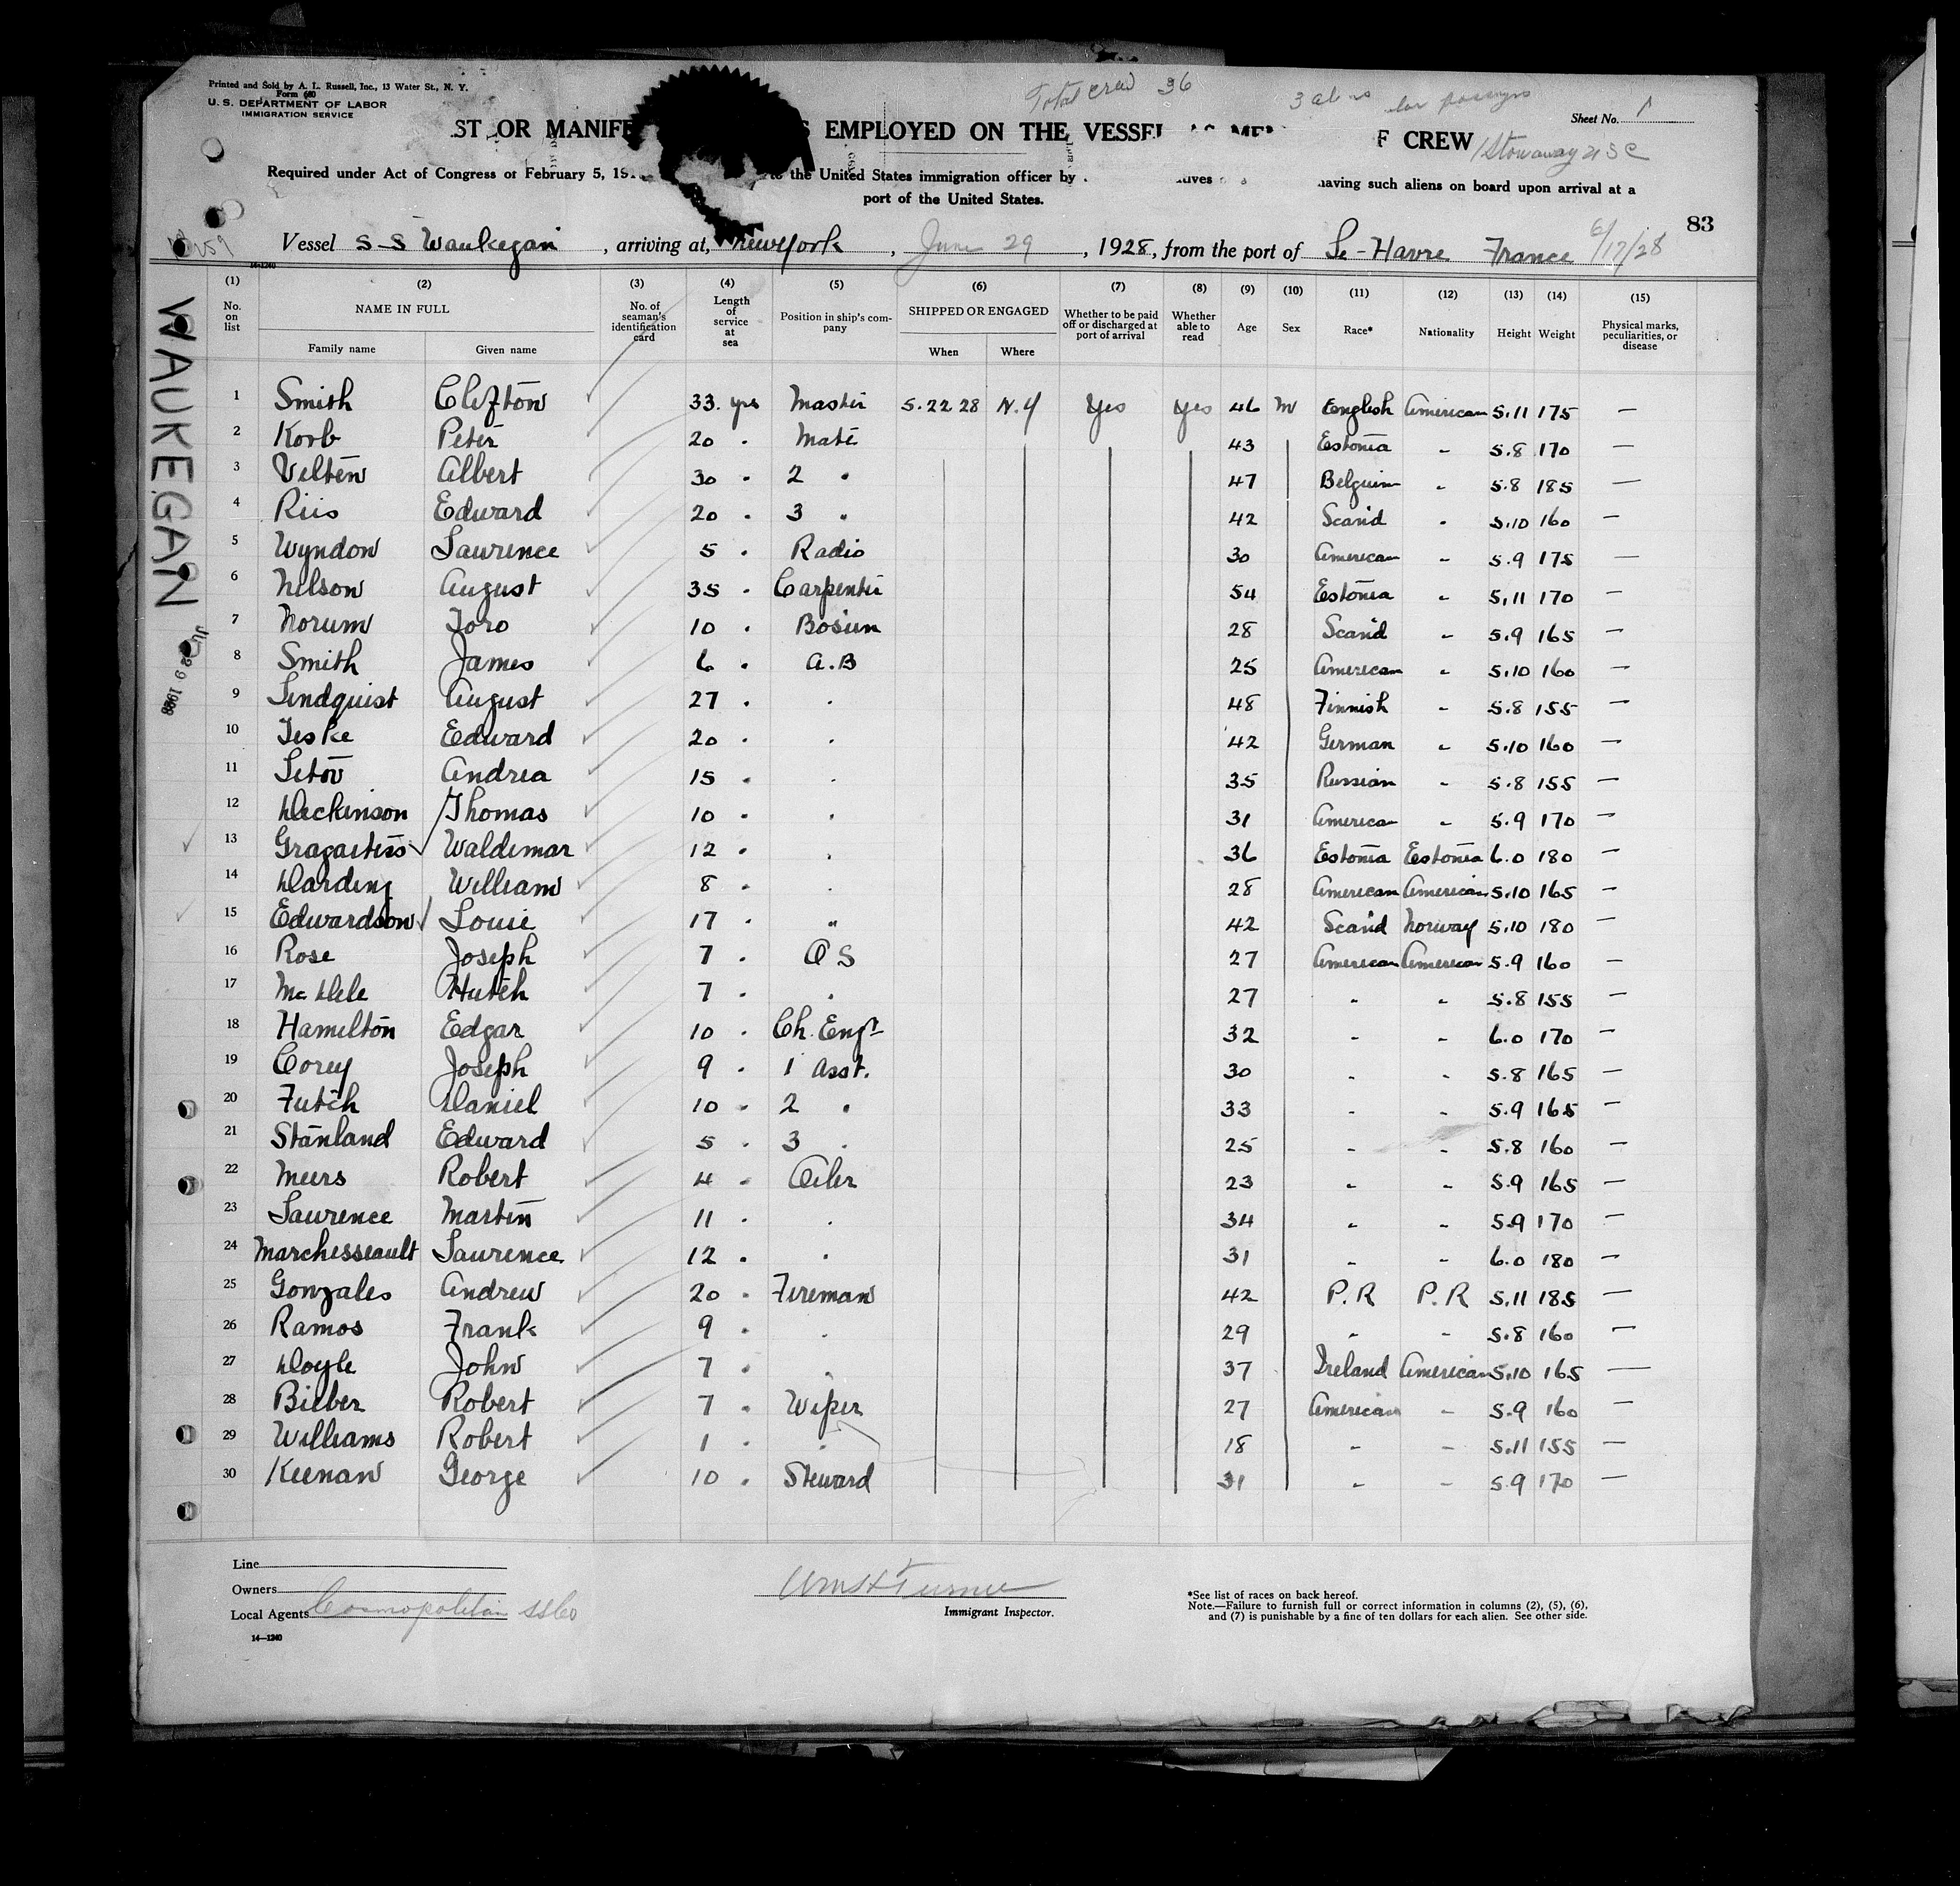 Printed and Sold by A. L. Russell, Inc., 13 Water St., N. Y.
Form 680
U. S. DEPARTMENT OF LABOR
IMMIGRATION SERVICE
Total crew 36
Sheet No. 1
ST OR MANIFE S EMPLOYED ON THE VESSEL AS MEM F CREW
1 Stowaway
Required under Act of Congress of February 5, 191 to the United States immigration officer by having such aliens on board upon arrival at a
port of the United States.
83
Vessel S-S Waukegan, arriving at, New York, June 29, 1928, from the port of Le-Havre France 6/17/28
14-1240
WAUKEGAN
29 1928
(1) (2) (3) (4) (5) (6) (7) (8) (9) (10) (11) (12) (13) (14) (15)
No. on list NAME IN FULL No. of seaman's identification card Length of service at sea Position in ship's company SHIPPED OR ENGAGED Whether to be paid off or discharged at port of arrival Whether able to read Age Sex Race* Nationality Height Weight Physical marks, peculiarities, or disease
Family name Given name When Where
1 Smith Clifton 33. yrs Master 5.22 28 N.Y Yes Yes 46 M English American 5.11 175 —
2 Korb Peter 20 " Mate 43 Estonia " 5.8 170 —
3 Velten Albert 30 " 2 " 47 Belguim " 5.8 185 —
4 Riis Edward 20 " 3 " 42 Scand " 5.10 160 —
5 Wyndon Laurence 5 " Radio 30 American " 5.9 175 —
6 Nilson August 35 " Carpenter 54 Estonia " 5.11 170 —
7 Norum Toro 10 " Bosun 28 Scand " 5.9 165 —
8 Smith James 6 " A.B 25 American " 5.10 160 —
9 Lindquist August 27 " " 48 Finnish " 5.8 155 —
10 Teske Edward 20 " " 42 German " 5.10 160 —
11 Letov Andrea 15 " " 35 Russian " 5.8 155 —
12 Dickinson Thomas 10 " " 31 American " 5.9 170 —
13 Waldemar 12 " " 36 Estonia Estonia 6.0 180 —
14 Harding William 8 " " 28 American American 5.10 165 —
15 Edwardson Louie 17 " " 42 Scand Norway 5.10 180 —
16 Rose Joseph 7 " O S 27 American American 5.9 160 —
17 Hutch 7 " " 27 " " 5.8 155 —
18 Hamilton Edgar 10 " Ch. Engr 32 " " 6.0 170 —
19 Corey Joseph 9 " 1 Asst. 30 " " 5.8 165 —
20 Futch Daniel 10 " 2 " 33 " " 5.9 165 —
21 Stanland Edward 5 " 3 " 25 " " 5.8 160 —
22 Meers Robert 4 " Oiler 23 " " 5.9 165 —
23 Laurence Martin 11 " " 34 " " 5.9 170 —
24 Marchesseault Laurence 12 " " 31 " " 6.0 180 —
25 Gonzales Andrew 20 " Fireman 42 P.R P.R 5.11 185 —
26 Ramos Frank 9 " " 29 " " 5.8 160 —
27 Doyle John 7 " " 37 Ireland American 5.10 165 —
28 Bieber Robert 7 " Wiper 27 American " 5.9 160 —
29 Williams Robert 1 " " 18 " " 5.11 155 —
30 Keenan George 10 " Steward 31 " " 5.9 170 —
Line
Owners
Local Agents Cosmopolitan SS Co
14—1240
Wm H Turner
Immigrant Inspector.
*See list of races on back hereof.
Note.—Failure to furnish full or correct information in columns (2), (5), (6),
and (7) is punishable by a fine of ten dollars for each alien. See other side.